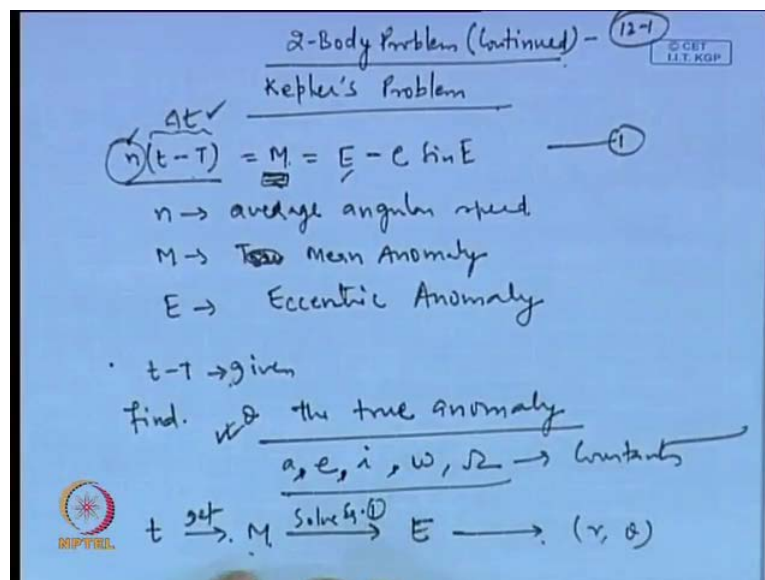 2-Body Problem (Continued) - 12-1
© CET
I.I.T. KGP
Kepler's Problem
Δt ✓
n(t-T) = M = E - e sin E —— 1
n → average angular speed
M → Mean Anomaly
E → Eccentric Anomaly
t-T → given
find. θ the true anomaly
a, e, i, ω, Ω → Constants
t get→ M Solve Eq. ①→ E → (r, θ)
NPTEL